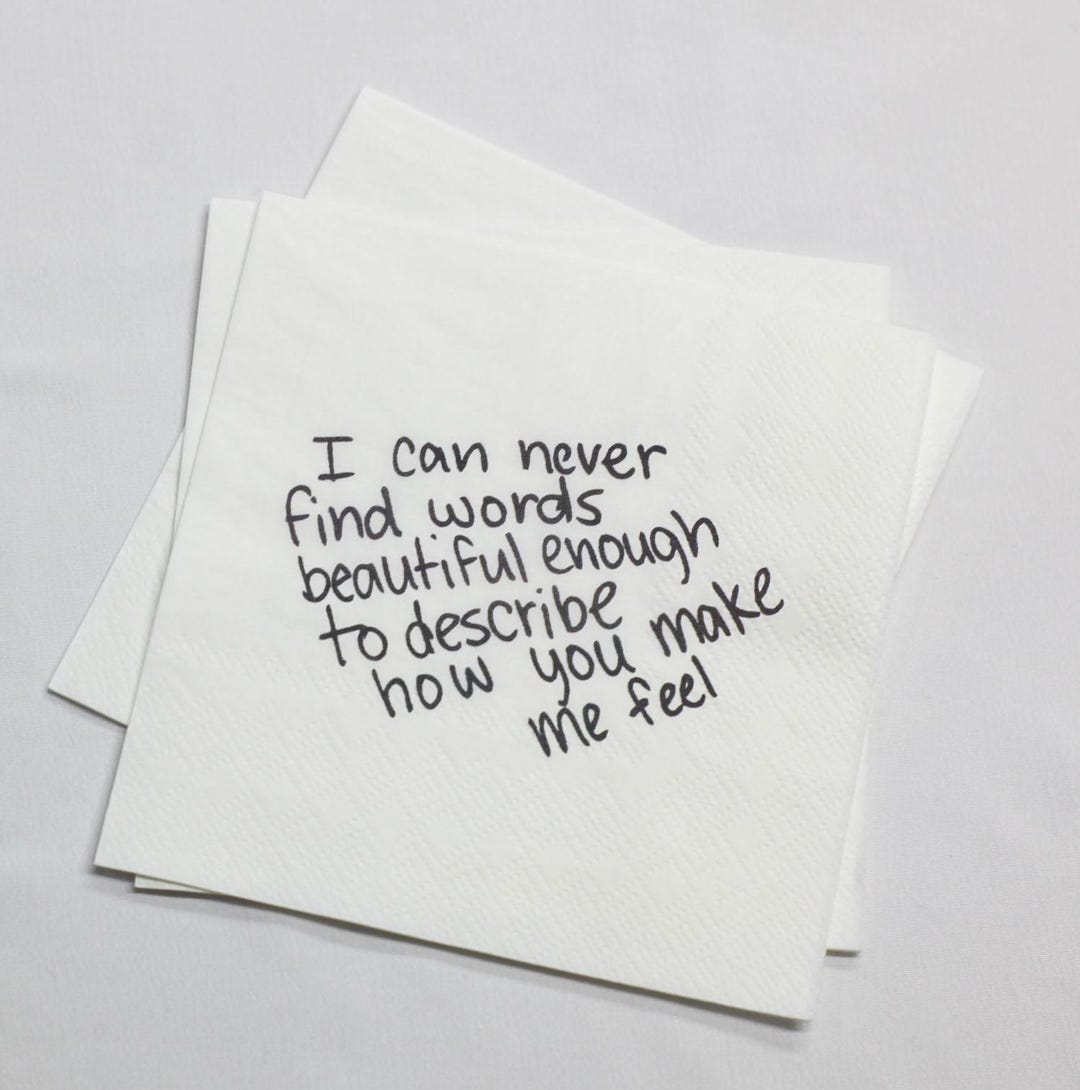 I can never
find words
beautiful enough
to describe
how you make
me feel